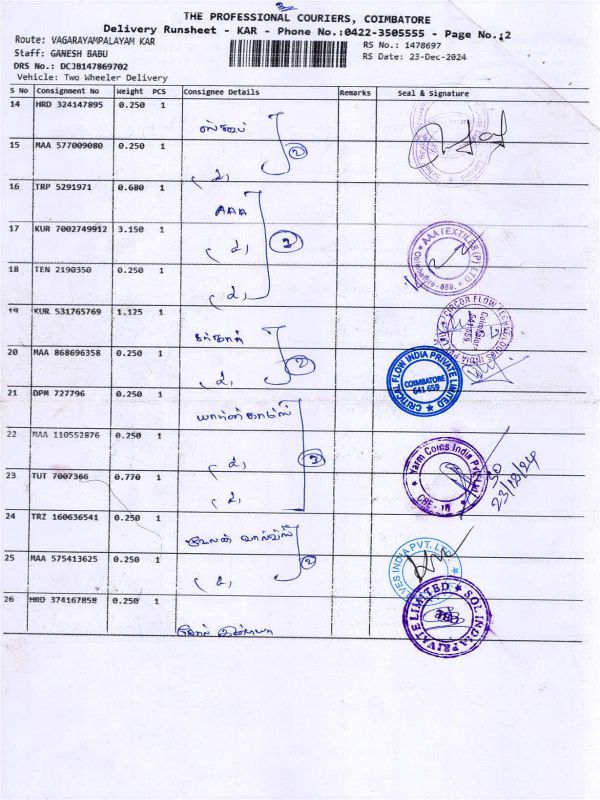 THE PROFESSIONAL COURIERS, COIMBATORE
Delivery Runsheet - KAR - Phone No.:0422-3505555 - Page No.:2
Route: VAGARAYAMPALAYAM KAR
RS No.: 1478697
Staff: GANESH BABU
RS Date: 23-Dec-2024
DRS No.: DCJB147869702
Vehicle: Two Wheeler Delivery
S No Consignment No Weight PCS Consignee Details Remarks Seal & Signature
14 HRD 324147895 0.250 1
15 MAA 577009080 0.250 1
2
16 TRP 5291971 0.680 1
AAA
17 KUR 7002749912 3.150 1
3
AAA TEXTILES (P) LTD
18 TEN 2190350 0.250 1
19 KUR 531765769 1.125 1
20 MAA 868696358 0.250 1
2
CRITICAL FLOW INDIA PRIVATE LIMITED
COIMBATORE
641 659
21 DPM 727796 0.250 1
யார்ன் காம்ஸ்
22 MAA 110552876 0.250 1
3
Yarn Coms India
CBE - 18
23 TUT 7007366 0.770 1
23/12/24
24 TRZ 160636541 0.250 1
வால்வ்ஸ்
2
VES INDIA PVT. LTD
25 MAA 575413625 0.250 1
26 HRD 374167858 0.250 1
SOL INDIA PRIVATE LIMITED